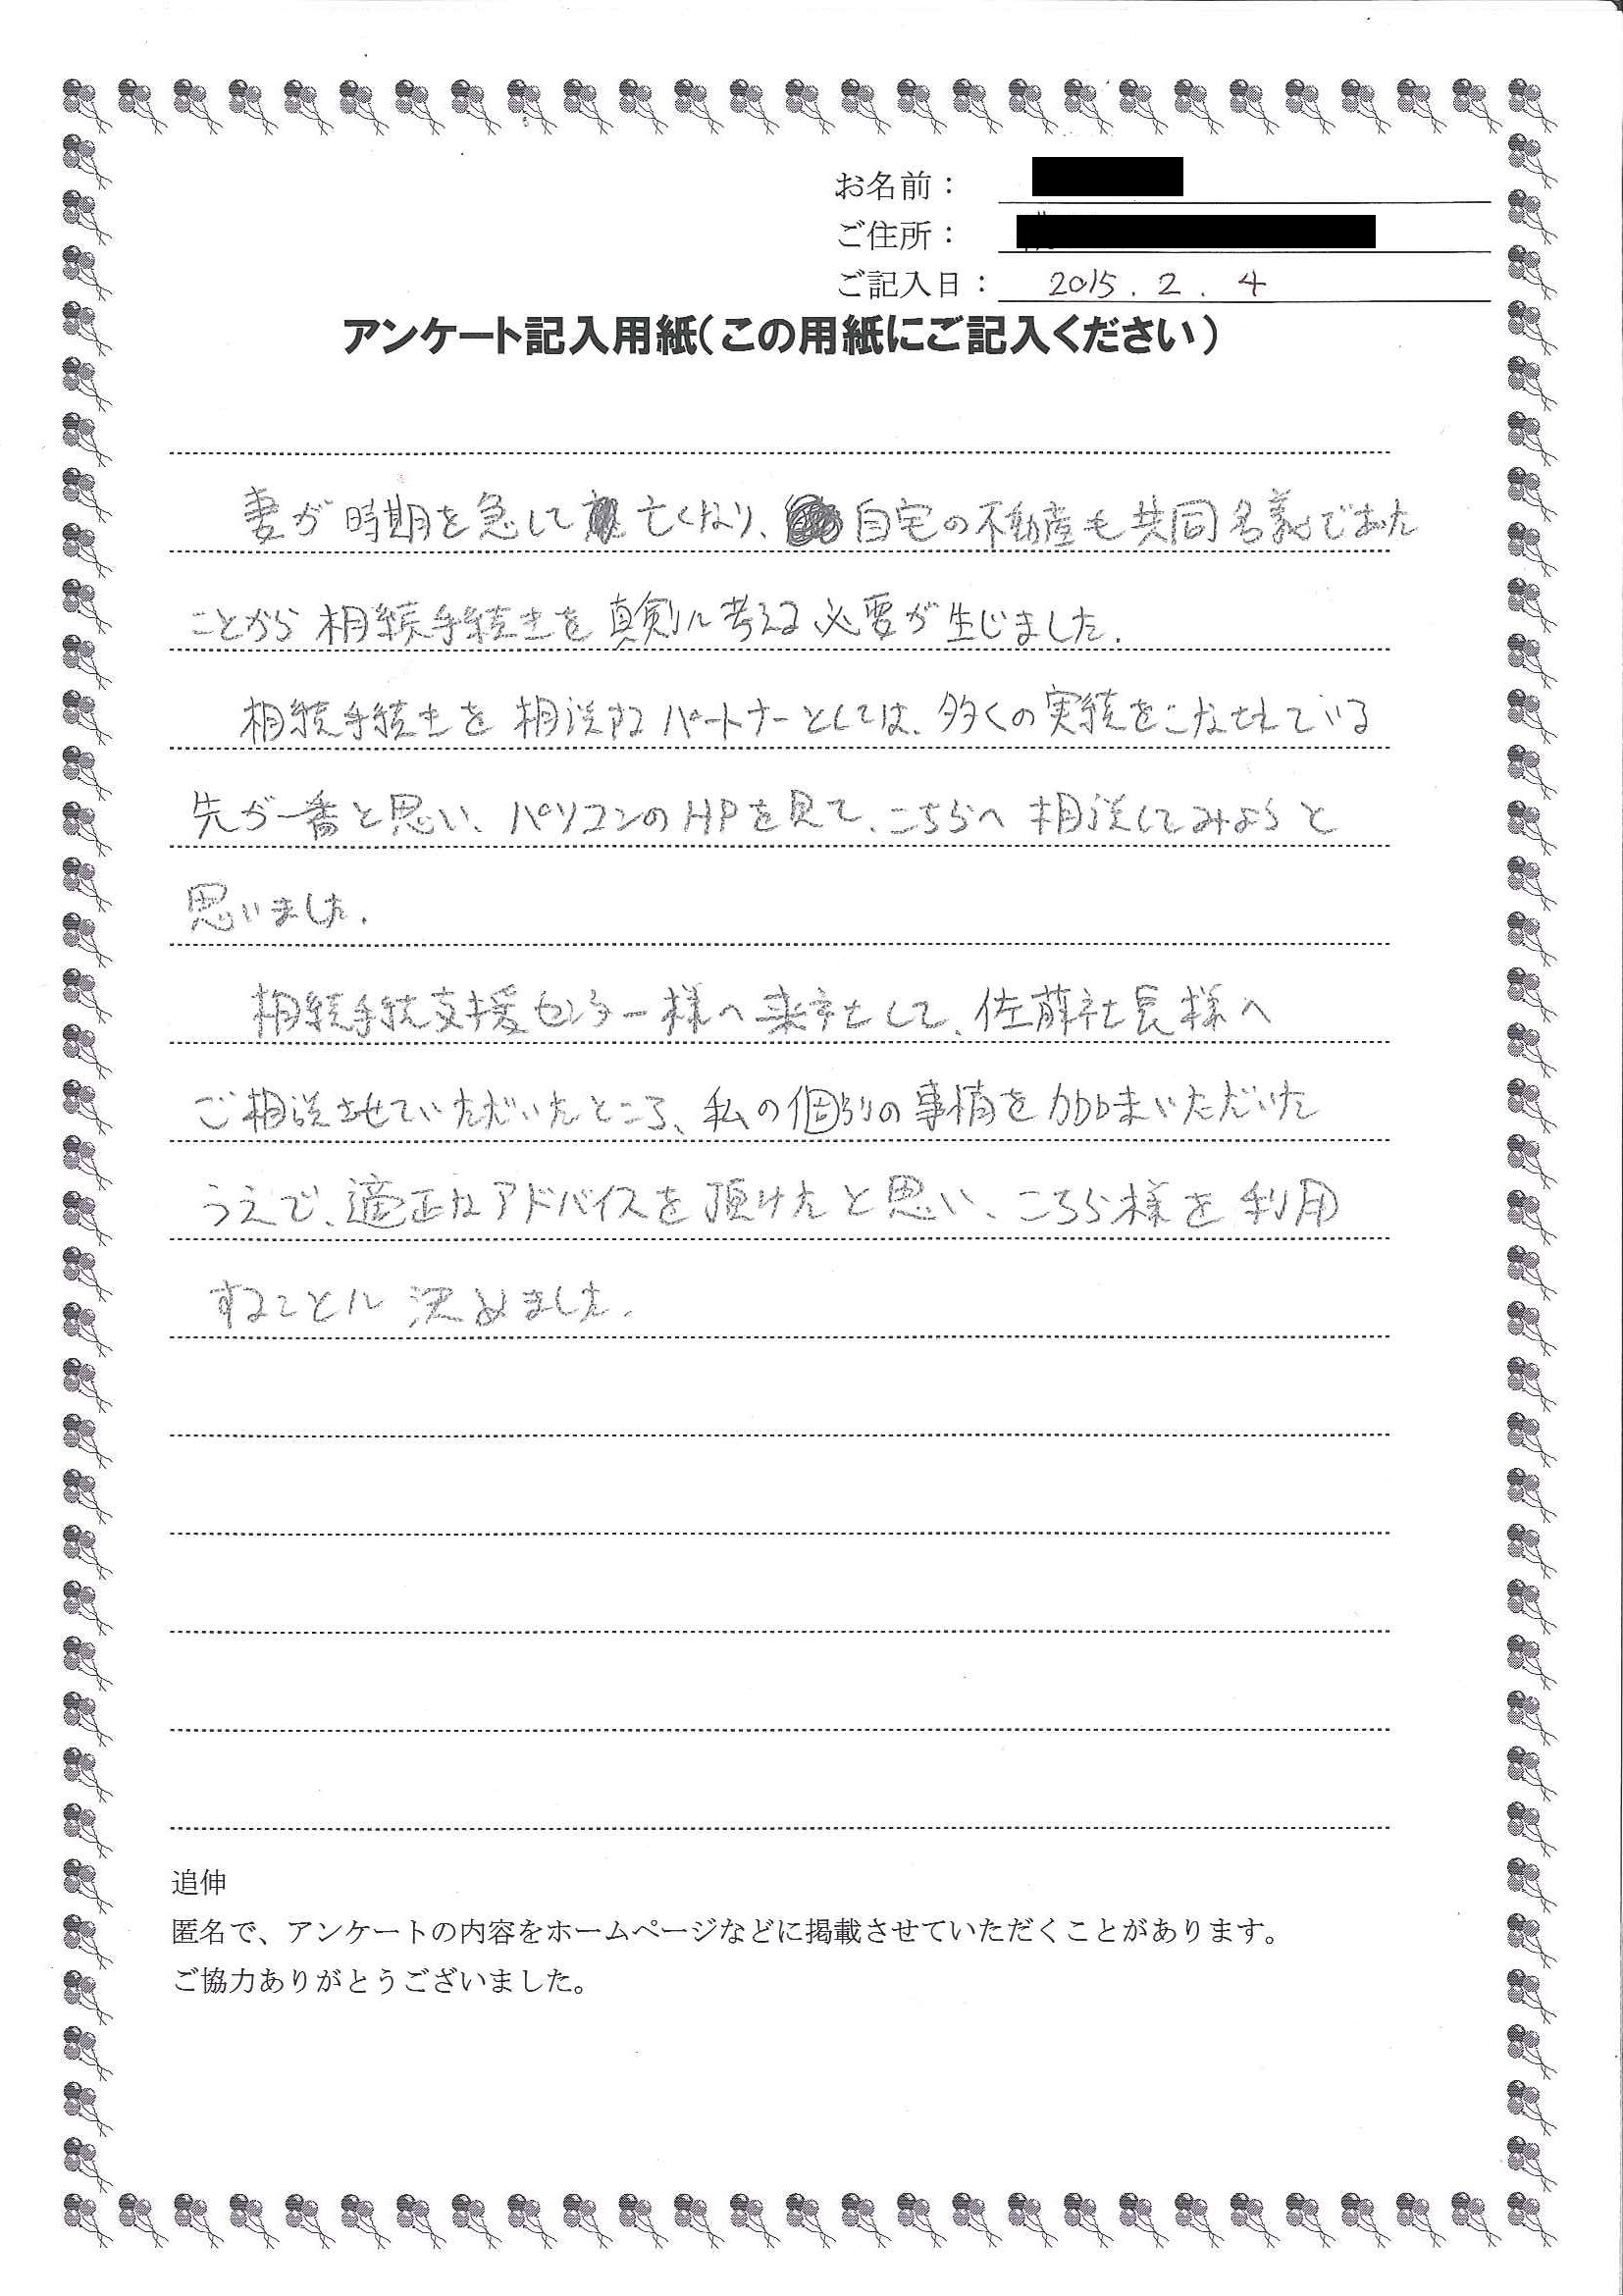 お名前：
ご住所：
ご記入日： 2015. 2. 4
アンケート記入用紙（この用紙にご記入ください）
妻が時期を急して亡くなり、自宅の不動産も共同名義であた
ことから相続手続きを真剣に考える必要が生じました.
相続手続きを相談するパートナーとしては、多くの実績をこなされている
先が一番と思い、パソコンのHPを見て、こちらへ相談してみようと
思いました.
相続手続支援センター様へ来社して、佐藤社長様へ
ご相談させていただいたところ、私の個別の事情を加味いただいた
うえで、適正なアドバイスを頂けたと思い、こちら様を利用
することに決めました.
追伸
匿名で、アンケートの内容をホームページなどに掲載させていただくことがあります。
ご協力ありがとうございました。